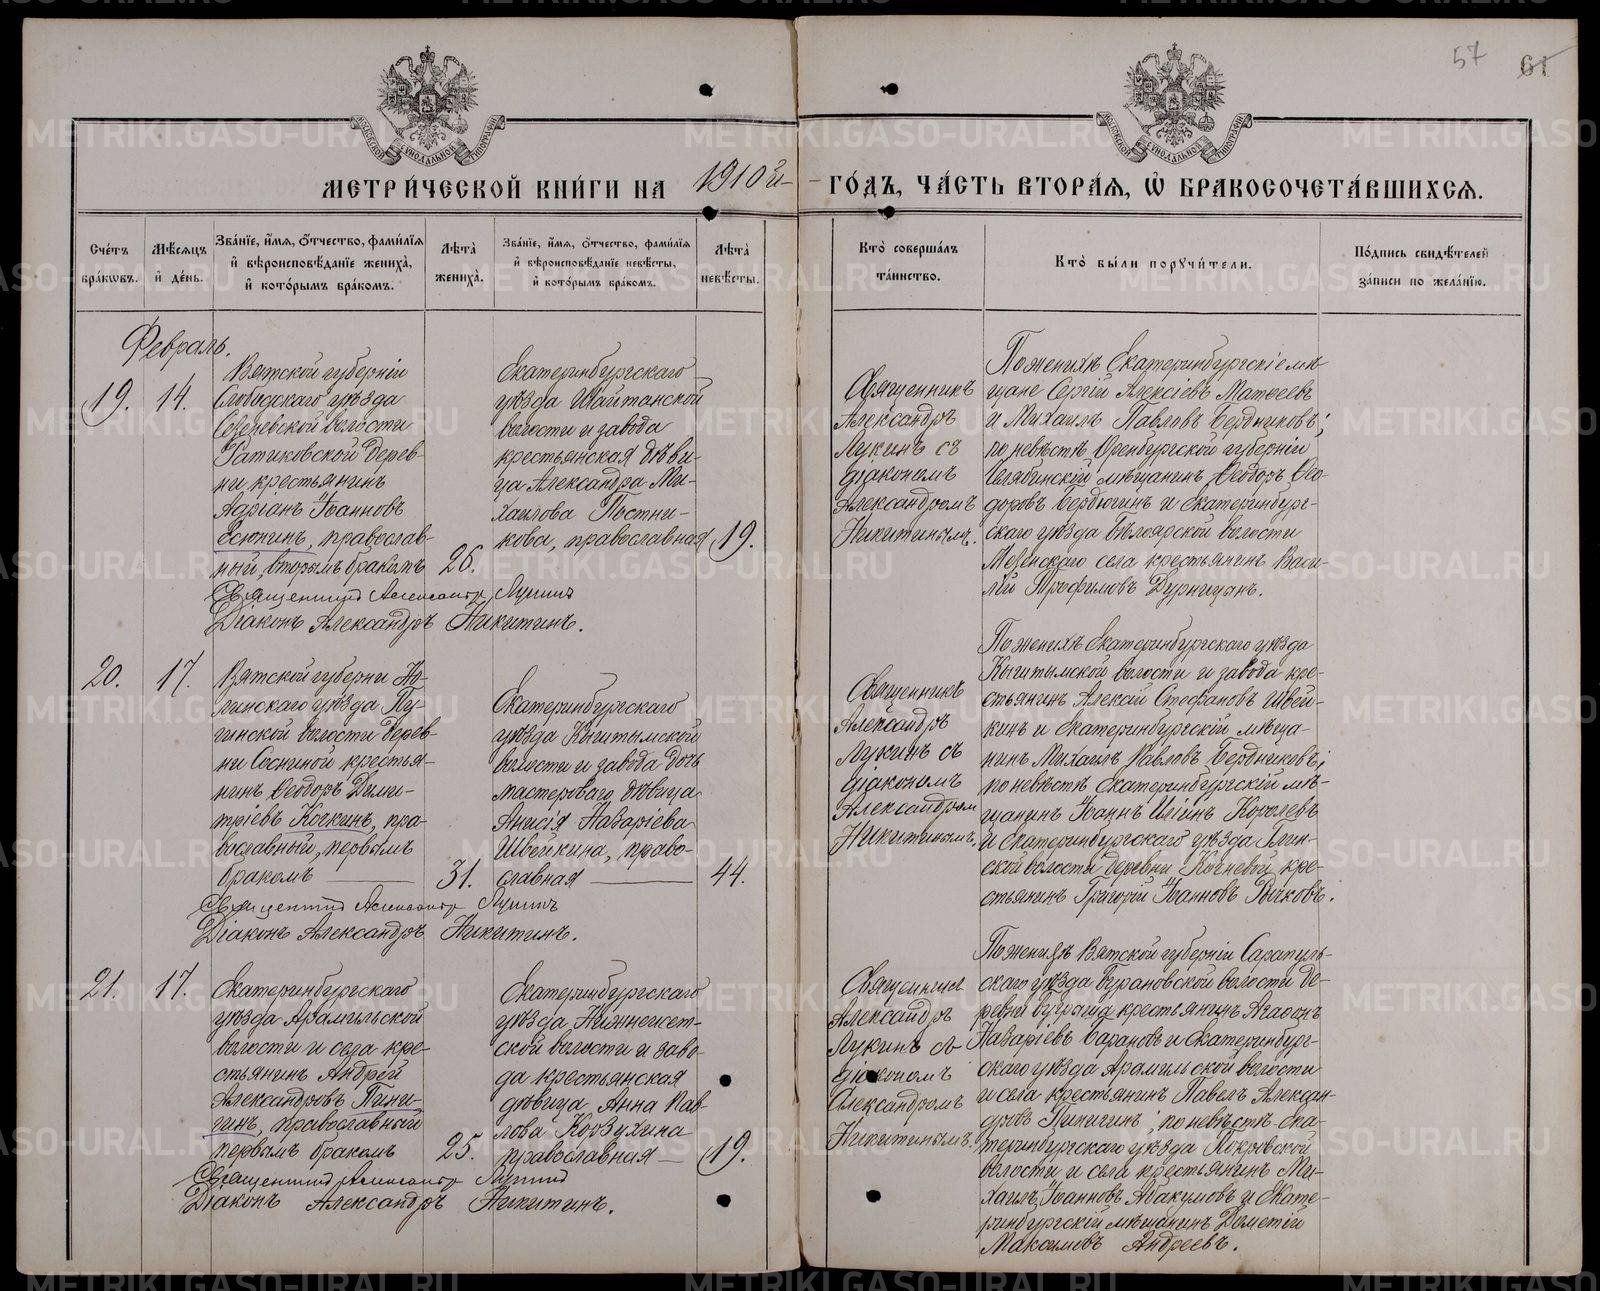 57 61
МЕТРИ́ЧЕСКОЙ КНИ́ГИ НА 1910й ГО́ДЪ, ЧА́СТЬ ВТОРА́Я, Ѡ БРАКОСОЧЕТА́ВШИХСЯ.
Сче́тъ бра́ковъ.
Мѣ́сяцъ и҆ де́нь.
Зва́нїе, и҆́мя, о҆́тчество, фами́лїя и҆ вѣроисповѣ́данїе жениха̀, и҆ кото́рымъ бра́комъ.
Лѣ́та жениха̀.
Зва́нїе, и҆́мя, о҆́тчество, фами́лїя и҆ вѣроисповѣ́данїе невѣ́сты, и҆ кото́рымъ бра́комъ.
Лѣ́та невѣ́сты.
Кто̀ соверша́лъ та́инство.
Кто̀ бы́ли порꙋчи́тели.
По́дпись свидѣ́телей за́писи по жела́нїю.
Февраль.
19. 14.
Вятской губернiи
Слободскаго уѣзда
волости
дерев-
ни крестьянинъ
Адрiанъ Iоанновъ
Есюнинъ, православ-
ный, вторымъ бракомъ
26.
Екатеринбургскаго
уѣзда Шайтанской
волости и завода
крестьянская дѣви-
ца Александра Ми-
хаилова Постни-
кова, православная
19.
Священникъ
Александръ
Лукинъ съ
дiакономъ
Александромъ
Никитинымъ.
По женихѣ Екатеринбургскiе мѣ-
щане Сергiй Алексiевъ Матвеевъ
и Михаилъ Павловъ Бердниковъ;
по невѣстѣ Оренбургской губернiи
Челябинскiй мѣщанинъ Ѳеодоръ Ѳео-
доровъ Бердюгинъ и Екатеринбург-
скаго уѣзда Бѣлоярской волости
Мезенскаго села крестьянинъ Васи-
лiй Трофимовъ Дурницынъ.
Священникъ Александръ Лукинъ
Дiаконъ Александръ Никитинъ.
20. 17.
Вятской губернiи Но-
линскаго уѣзда Ту-
жинской волости дерев-
ни Сосниной крестья-
нинъ Ѳеодоръ Дими-
трiевъ Кочкинъ, пра-
вославный, первымъ
бракомъ
31.
Екатеринбургскаго
уѣзда Кыштымской
волости и завода дочь
мастероваго дѣвица
Анисiя Назарiева
Швейкина, право-
славная
44.
Священникъ
Александръ
Лукинъ съ
дiакономъ
Александромъ
Никитинымъ.
По женихѣ Екатеринбургскаго уѣзда
Кыштымской волости и завода кре-
стьянинъ Алексiй Стефановъ Швей-
кинъ и Екатеринбургскiй мѣща-
нинъ Михаилъ Павловъ Бердниковъ;
по невѣстѣ Екатеринбургскiй мѣ-
щанинъ Iоаннъ Илiинъ Королевъ
и Екатеринбургскаго уѣзда
ской волости деревни Кочневой кре-
стьянинъ Григорiй Iоанновъ Бычковъ.
Священникъ Александръ Лукинъ
Дiаконъ Александръ Никитинъ.
21. 17.
Екатеринбургскаго
уѣзда Арамильской
волости и села кре-
стьянинъ Андрей
Александровъ Пини-
гинъ, православный
первымъ бракомъ
25.
Екатеринбургскаго
уѣзда Нижнеисет-
ской волости и заво-
да крестьянская
дѣвица Анна Пав-
лова Корзухина
православная
19.
Священникъ
Александръ
Лукинъ съ
дiакономъ
Александромъ
Никитинымъ.
По женихѣ Вятской губернiи Сарапуль-
скаго уѣзда Бурановской волости де-
ревни крестьянинъ Агаѳонъ
Назарiевъ Барановъ и Екатеринбург-
скаго уѣзда Арамильской волости
и села крестьянинъ Павелъ Алексан-
дровъ Пинигинъ; по невѣстѣ Ека-
теринбургскаго уѣзда Покровской
волости и села крестьянинъ Ми-
хаилъ Iоанновъ Абакумовъ и Екате-
ринбургскiй мѣщанинъ Дометiй
Максимовъ Андреевъ.
Священникъ Александръ Лукинъ
Дiаконъ Александръ Никитинъ.
METRIKI.GASO-URAL.RU